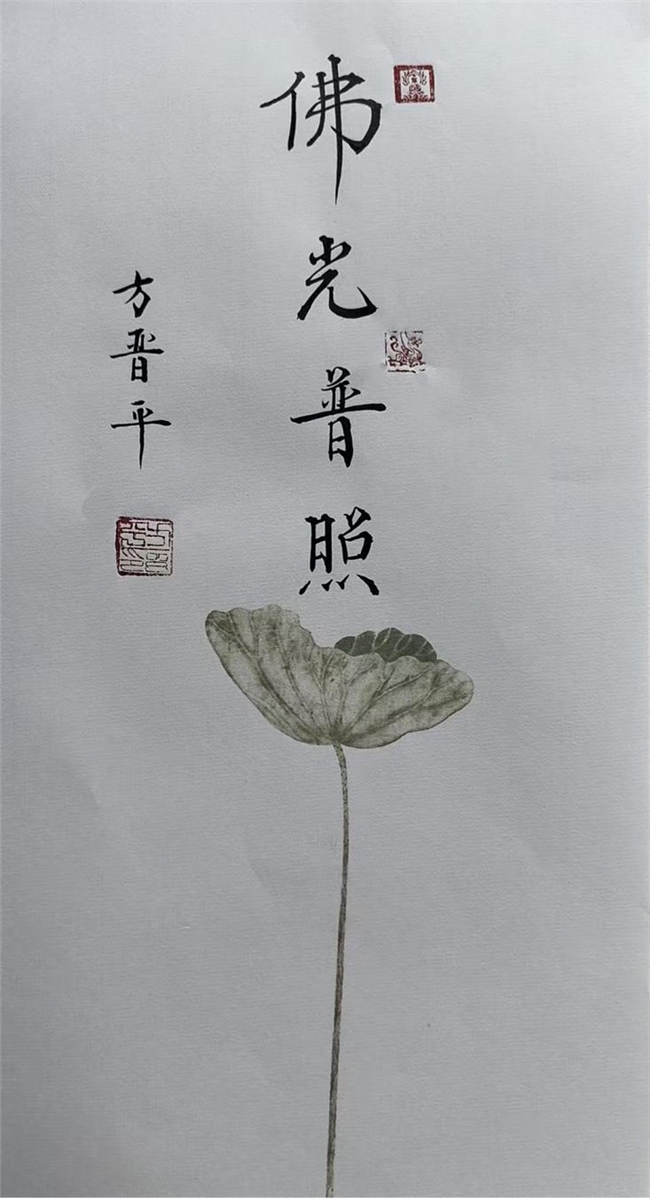 佛光普照
方晋平